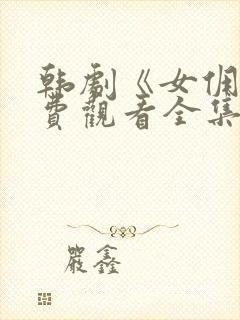 韩剧《女佣
费观看全集
严鑫